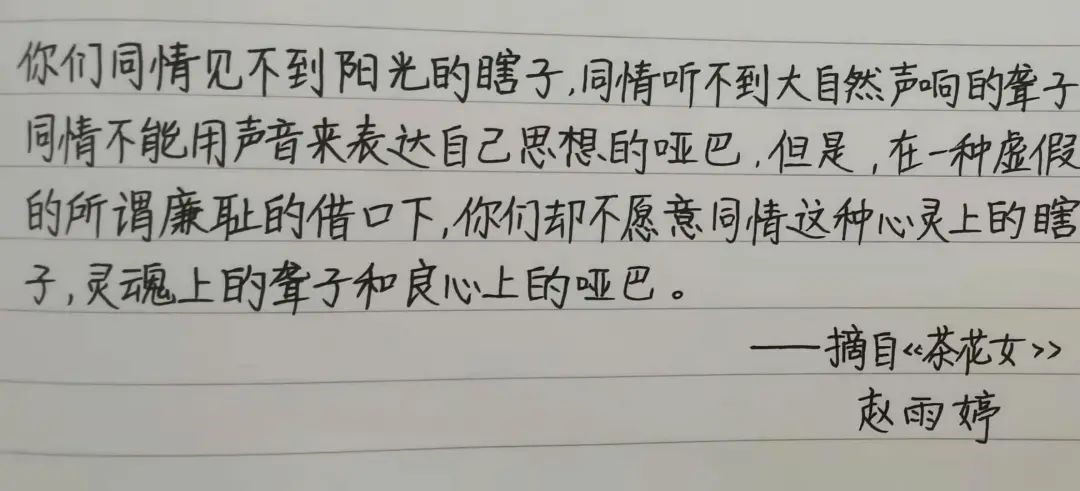 你们同情见不到阳光的瞎子,同情听不到大自然声响的聋子
同情不能用声音来表达自己思想的哑巴,但是,在一种虚假
的所谓廉耻的借口下,你们却不愿意同情这种心灵上的瞎
子,灵魂上的聋子和良心上的哑巴。
——摘自《茶花女》
赵雨婷